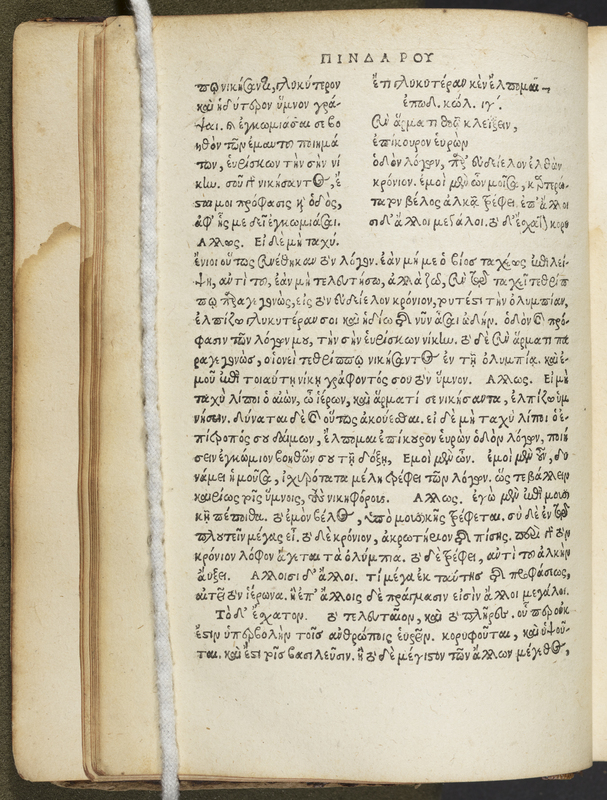 ΠΙΝΔΑΡΟΥ
τῳ νικήσαντι, γλυκύτερον
καὶ ἡδύτερον ὕμνον γρά-
ψαι. ἐγκωμιάσαι σε βο
ηθὸν τῶν ἐμαυτοῦ ποιημά
των, εὑρίσκων τὴν σὴν νί
κην. τοῦ νικήσαντος, ἔ
σται μοι πρόφασις καὶ ὁδὸς,
ἀφ' ἧς με δεῖ ἐγκωμιάσαι.
Ἄλλως. Εἰ δὲ μὴ ταχύ.
ἔτι γλυκυτέραν κεν ἔλπομαι
ἐπωδ. κώλ. ιγ'.
σὺν ἅρματι θοῷ κλεΐξειν,
ἐπίκουρον εὑρὼν
ὁδὸν λόγων, παρ' εὐδείελον ἐλθὼν
κρόνιον. ἐμοὶ μὲν ὦν μοῖσα, καρτερώ-
τατον βέλος ἀλκᾷ τρέφει. ἐπ' ἄλλοι
σι δ' ἄλλοι μεγάλοι. τὸ δ' ἔσχατον κορυ
ἔνιοι οὕτως συνέθηκαν τὸν λόγον. ἐὰν μή με ὁ βίος ταχέως ἐπιλεί-
ψῃ, ἀντὶ τοῦ, ἐὰν μὴ τελευτήσω, ἀλλὰ ζῶ, σὺν τῷ ταχεῖ τεθρίπ
πῳ παραγεγονὼς, εἰς τὸν εὐδείελον κρόνιον, τουτέστι τὴν ὀλυμπίαν,
ἐλπίζω γλυκυτέραν σοι καὶ ἡδίω τῆς νῦν ᾆσαι ᾠδήν. ὁδὸν τὸ πρό-
φασιν τῶν λόγων μου, τὴν σὴν εὑρίσκων νίκην. τὸ δὲ σὺν ἅρματι πα
ραγεγονὼς, οἱονεὶ τεθρίππῳ νικήσαντος ἐν τῇ ὀλυμπίᾳ. καὶ ἐ-
μοῦ ἐπὶ τοιαύτῃ νίκῃ γράφοντός σου τὸν ὕμνον. Ἄλλως. Εἰ μὴ
ταχὺ λίποι ὁ αἰὼν, ὦ ἱέρων, καὶ ἅρματί σε νικήσαντα, ἐλπίζω ὑμ
νήσειν. δύναται δὲ καὶ οὕτως ἀκούεσθαι. εἰ δὲ μὴ ταχὺ λίποι ὁ ἐ-
πίτροπός σου δαίμων, ἔλπομαι ἐπίκουρον εὑρὼν ὁδὸν λόγων, ποιή
σειν ἐγκώμιον βοηθῶν σου τῇ δόξῃ. Ἐμοὶ μὲν ὦν. ἐμοὶ μὲν οὖν, δυ
νάμει ἡ μοῦσα, ἰσχυρότατα μέλη τρέφει τῶν λόγων. ὥστε βάλλειν
καθίως τοῖς ὕμνοις, τοὺς νικηφόρους. Ἄλλως. ἐγὼ μὲν ἐπὶ μουσι
κῇ πέποιθα. τὸ ἐμὸν βέλος, ὑπὸ μουσικῆς τρέφεται. σὺ δὲ ἐν τῷ
πλουτεῖν μέγας εἶ. τὸ δὲ κρόνιον, ἀκρωτήριον τῆς πίσης. περὶ δὲ τὸν
κρόνιον λόφον ἄγεται τὰ ὀλύμπια. τὸ δὲ τρέφει, ἀντὶ τοῦ ἀλκὴν
αὔξει. Ἄλλοισι δ' ἄλλοι. τί μέγα ἐκ ταύτης τῆς προφάσεως,
αἰτεῖ τὸν ἱέρωνα. ἢ ἐπ' ἄλλοις δὲ πράγμασιν εἰσὶν ἄλλοι μεγάλοι.
Τὸ δ' ἔσχατον. τὸ τελευταῖον, καὶ τὸ πλῆρες. οὗ περ οὐκ
ἔστιν ὑπερβολὴν τοῖς ἀνθρώποις εὑρεῖν. κορυφοῦται, καὶ ὑψοῦ-
ται. καὶ ἔστι τοῖς βασιλεῦσιν. ἢ τὸ δὲ μέγιστον τῶν ἄλλων μέγεθος,